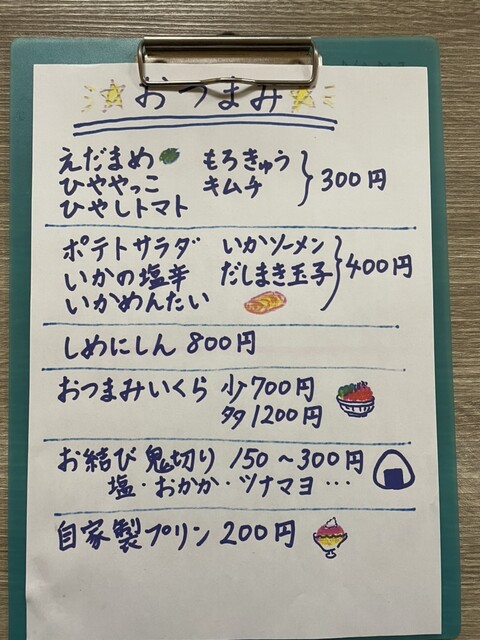 おつまみ
えだまめ もろきゅう
ひややっこ キムチ 300円
ひやしトマト
ポテトサラダ いかソーメン
いかの塩辛 だしまき玉子 400円
いかめんたい
しめにしん 800円
おつまみいくら 少700円
多1200円
お結び 鬼切り 150～300円
塩・おかか・ツナマヨ…
自家製プリン 200円